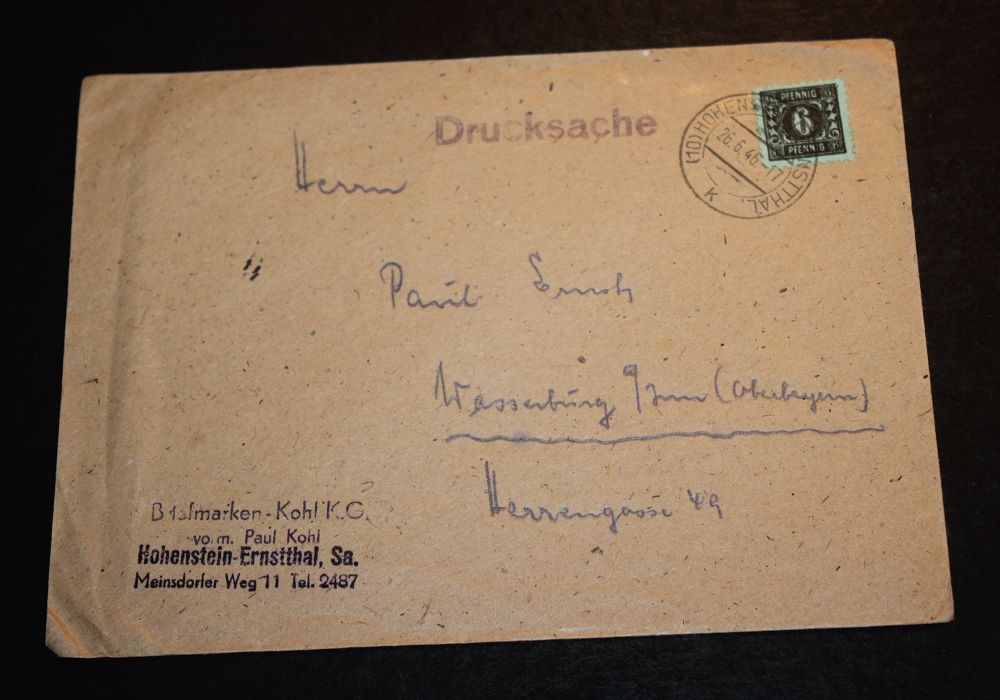 Drucksache
(10) HOHENSTEIN-ERNSTTHAL
26.6.46.-17
k
PFENNIG
6
PFENNIG
Herrn
Paul Ernst
Wasserburg a/Inn (Oberbayern)
Herrengasse 49
Briefmarken-Kohl K.G.
vorm. Paul Kohl
Hohenstein-Ernstthal, Sa.
Meinsdorfer Weg 11 Tel. 2487